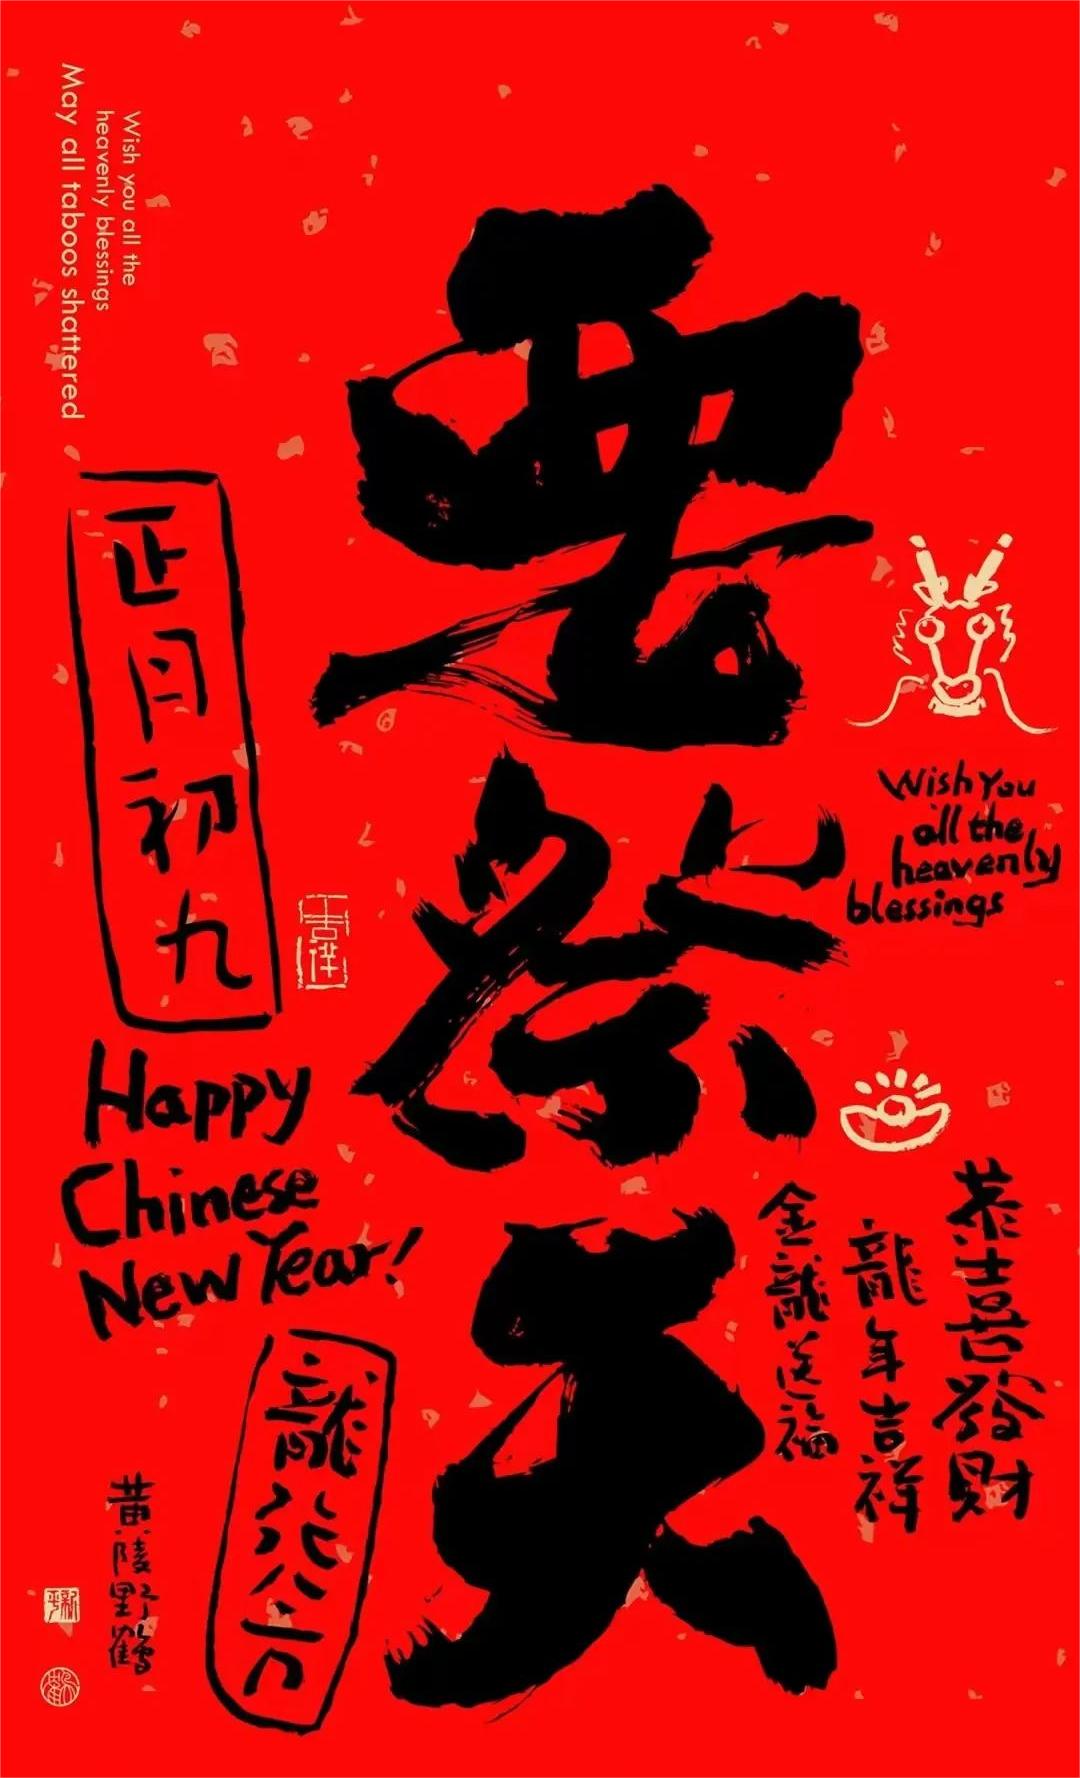 May all taboos shattered
Wish you all the
heavenly blessings
要祭天
正月初九
吉祥
Happy
Chinese
New Year!
龍行八方
黄陵野鶴
Wish You
all the
heavenly
blessings
恭喜發财
龍年吉祥
金龍送福